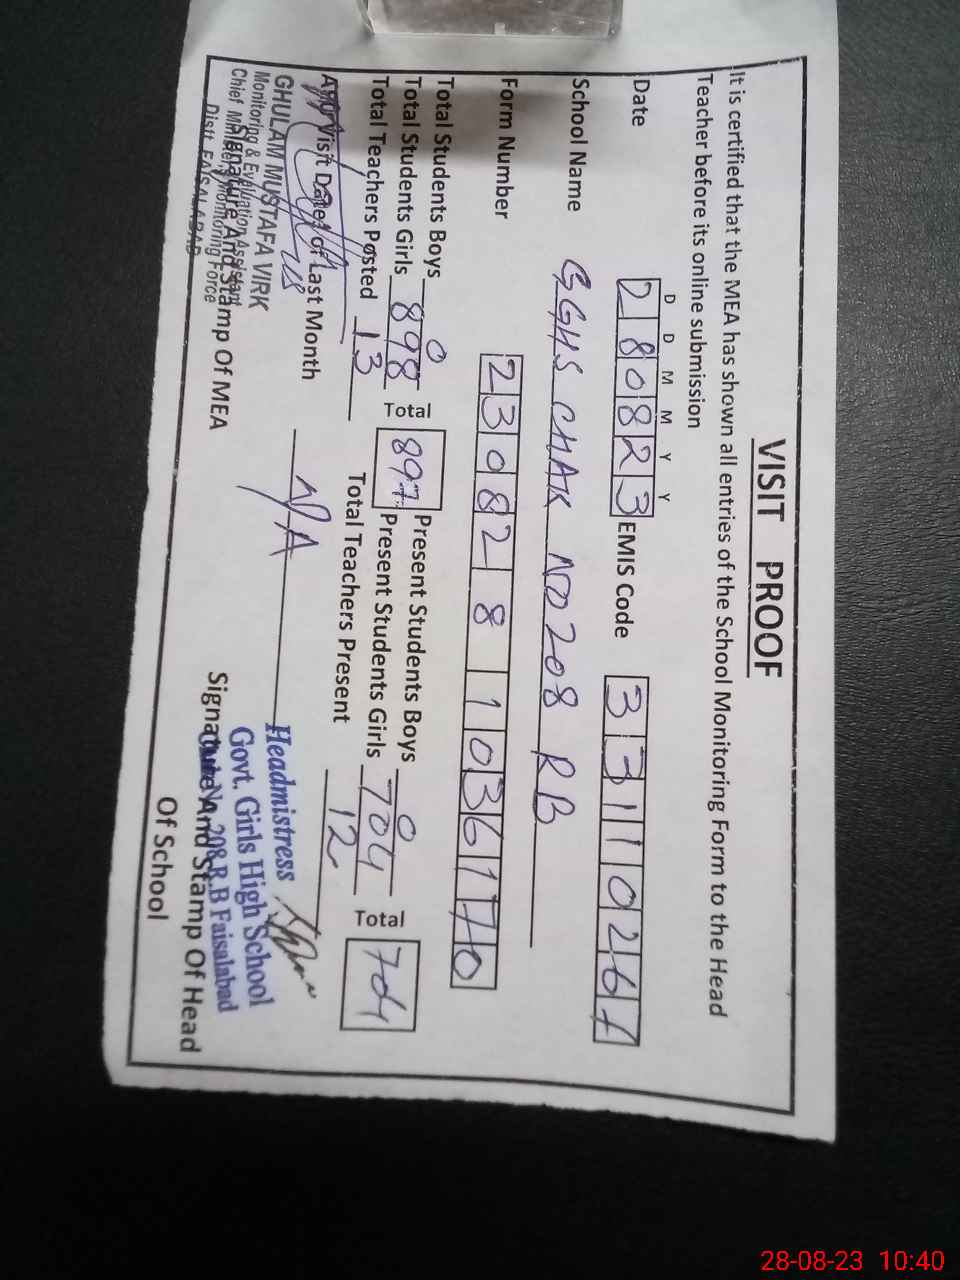 VISIT PROOF
It is certified that the MEA has shown all entries of the School Monitoring Form to the Head
Teacher before its online submission
D D M M Y Y
Date 280823 EMIS Code 33110261
School Name GGHS CHAK NO 208 RB
Form Number 230828 1036170
Total Students Boys 0 Present Students Boys 0
Total Students Girls 898 Total 897 Present Students Girls 704 Total 704
Total Teachers Posted 13 Total Teachers Present 12
Any Visit Date of Last Month N/A
GHULAM MUSTAFA VIRK
Monitoring & Evaluation Assistant
Chief Minister's Monitoring Force
Distt. FAISALABAD
Signature And Stamp Of MEA
Headmistress
Govt. Girls High School
208 R.B Faisalabad
Signature And Stamp Of Head
Of School
28-08-23 10:40